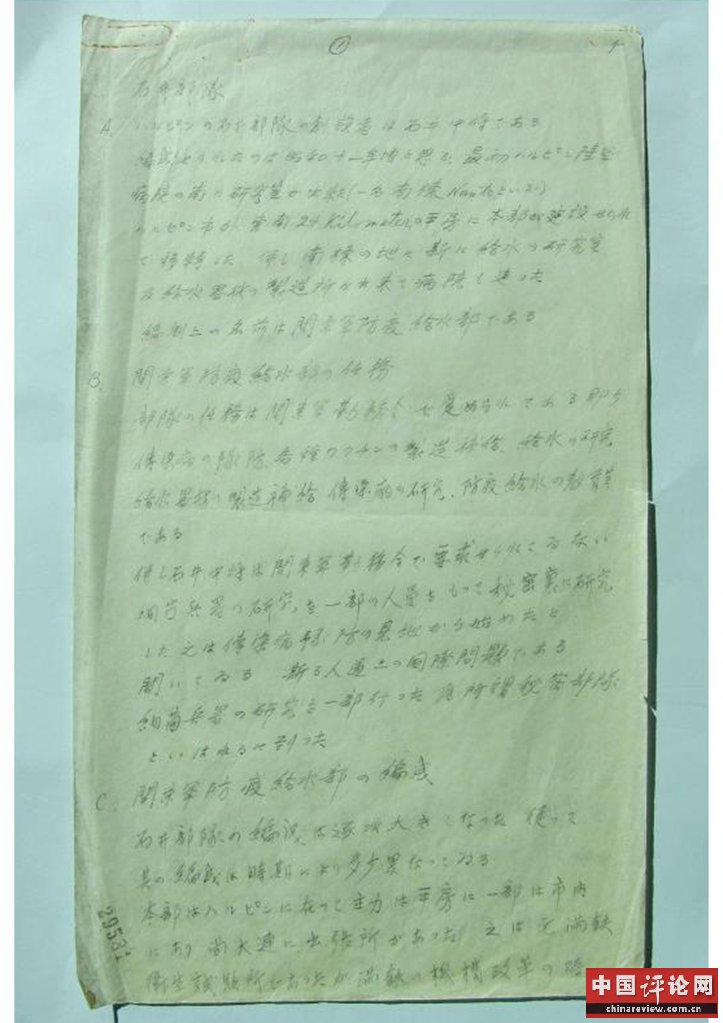 ①
石井部隊
A. ハルピンの石井部隊の創設者は石井中将である
編成せられたのは昭和十一年頃と思る、最初ハルピン陸軍
病院の南に研究室が出来(一名南棟 といふ)
ハルピン市から東南24 Kilometerの平房に本部が建設せられ
て移転した、併し南棟の地に新に給水の研究室
及給水器材の製造所が出来て病院と違った
編制上の名前は関東軍防疫給水部である
B. 関東軍防疫給水部の任務
部隊の任務は関東軍勤務令で定められてある即ち
傳染病の豫防、各種ワクチンの製造補給、給水の研究
給水器材の製造補給 傳染病の研究、防疫給水の教育等
である
併し石井中将は関東軍勤務令で要求せられてゐない
細菌兵器の研究を一部の人員をもって秘密裏に研究
した 之は傳染病豫防の見地から始めたと
聞いてゐる 斯る人道上の国際問題である
細菌兵器の研究を一部行った為所謂秘密部隊
といはれるに到った
C. 関東軍防疫給水部の編成
石井部隊の編成は逐次大きくなった 従って
其の編成は時期により多少異なってゐる
本部はハルピンに在って主力は平房に一部は市内
にあり 尚大連に出張所があった 之は元満鉄
衛生試験所であったが満鉄の機構改革の時
29531
中国评论网
chinareview.com